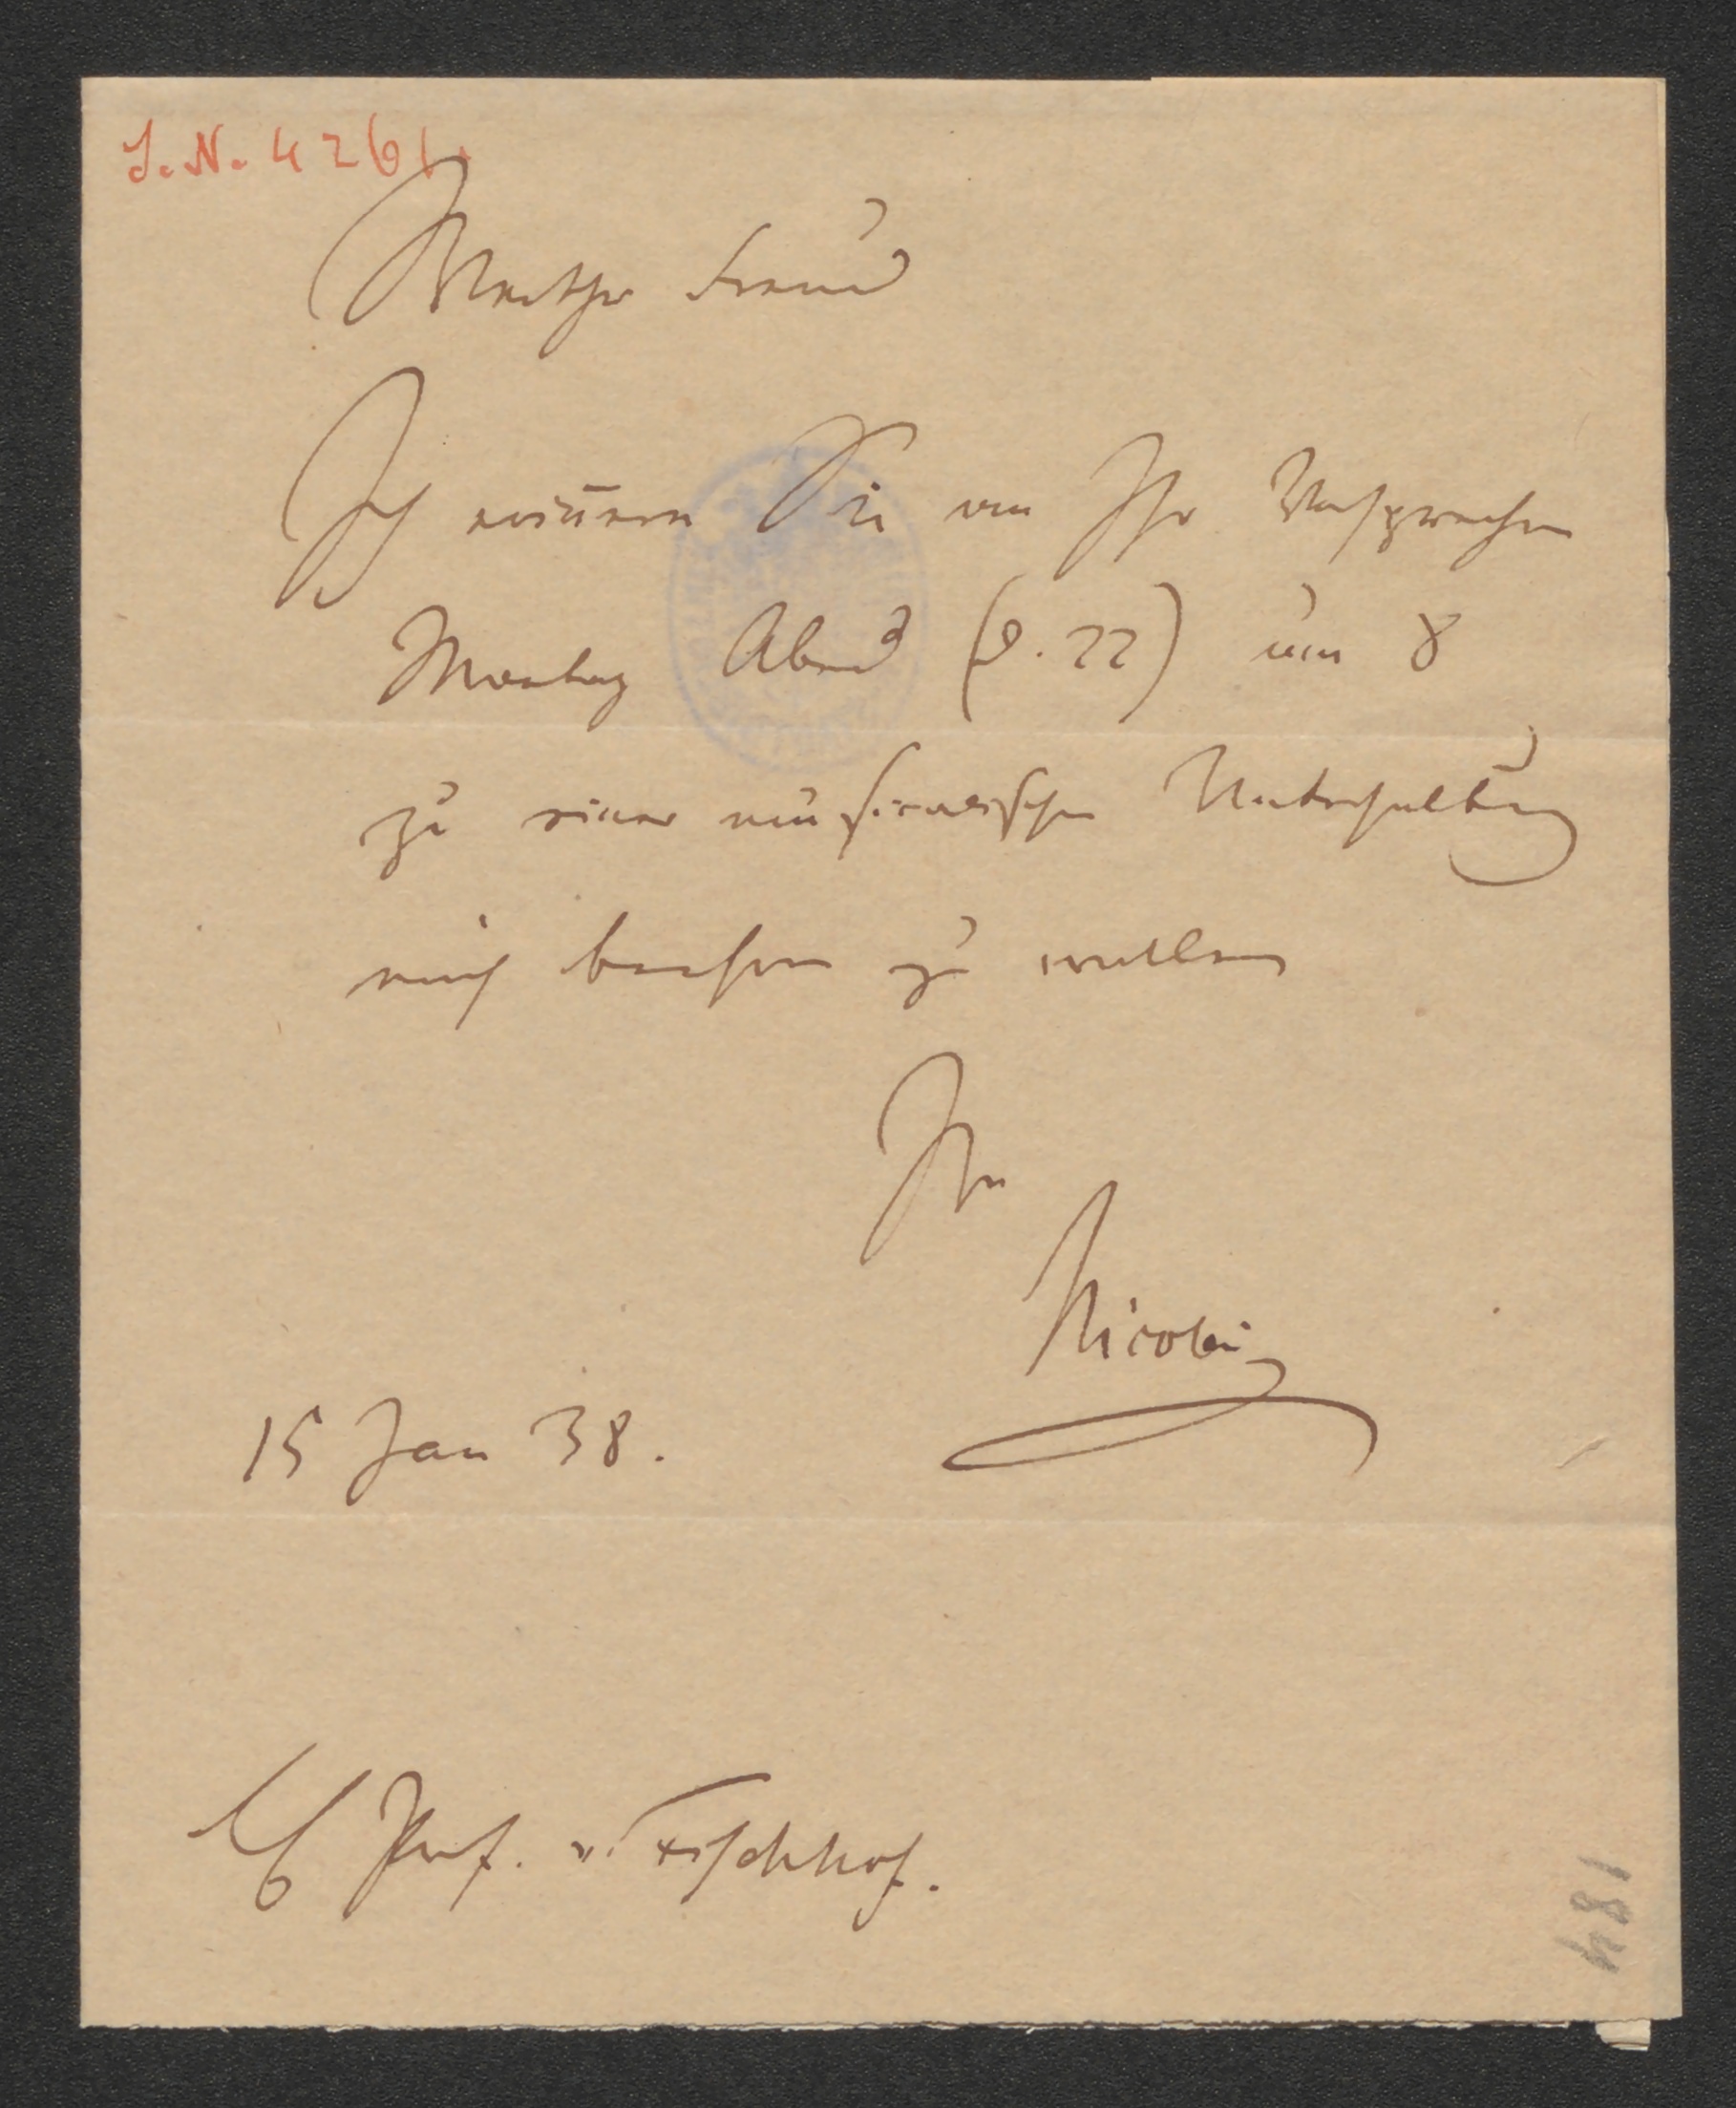 J. N. 4261.
Werther Freund
Ich erinnere Sie an Ihr Versprechen
Montag Abend (d. 22) um 8
zu einer musicalischen Unterhaltung
mich besuchen zu wollen
Ihr
Nicolai
15 Jan 38.
Prof. v. Fischhof.
184